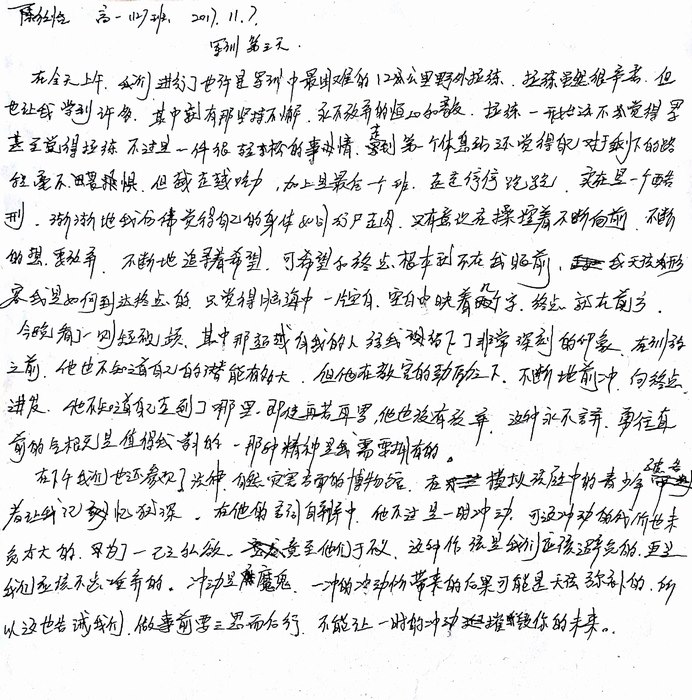 高一1127班. 2017.11.7.
军训第三天.
在今天上午,我们进行了也许是军训中最困难的12公里野外拉练,拉练虽然很辛苦,但
也让我学到许多,其中就有那坚持不懈,永不放弃的恒心和勇敢.拉练一开始还不太觉得累
甚至觉得拉练不过是一件很轻松的事情,到第一个休息站还觉得 对于剩下的路
毫不畏惧,但越走越吃力,加上是最后一个班,走走停停跑跑,实在是一个酷
刑.渐渐地我仿佛觉得自己的身体如同行尸走肉,只有意志在操控着不断向前,不断
的想要放弃,不断地追寻着希望,可希望和终点根本就不在我眼前,我无法形
容我是如何到达终点的,只觉得脑海中一片空白,空白中映着几个字,终点就在前方.
今晚看了一则短视频,其中那超越自我的人给我留下了非常深刻的印象,在训练
之前,他也不知道自己的潜能有多大,但他在教官的动力之下,不断地前冲,向终点
进发.他不知道自己走到了哪里,即使再苦再累,他也没有放弃,这种永不言弃,勇往直
前的气概是值得我 的,那种精神是我需要拥有的。
在下午我们也还参观了法律、自然灾害方面的博物馆,在模拟法庭中的青少年被告
者让我记忆犹深.在他的言词自辩中,他不过是一时冲动,可这冲动的代价也未
免太大的,因为了一己之私欲,竟至他们于不,这种作法是我们应该避免的,更是
我们应该不去 弃的.冲动是魔鬼,一时的冲动你带来的后果可能是无法弥补的,所
以这也告诫我们,做事前要三思而后行,不能让一时的冲动摧毁你的未来。